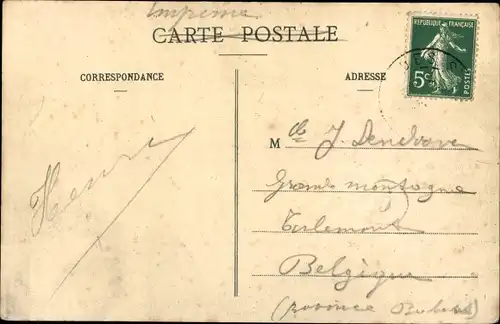 Imprimé
CARTE POSTALE
RÉPUBLIQUE FRANÇAISE
5c
POSTES
CORRESPONDANCE
ADRESSE
Henri
Mlle J.
Grande montagne
Tirlemont
Belgique
(Province